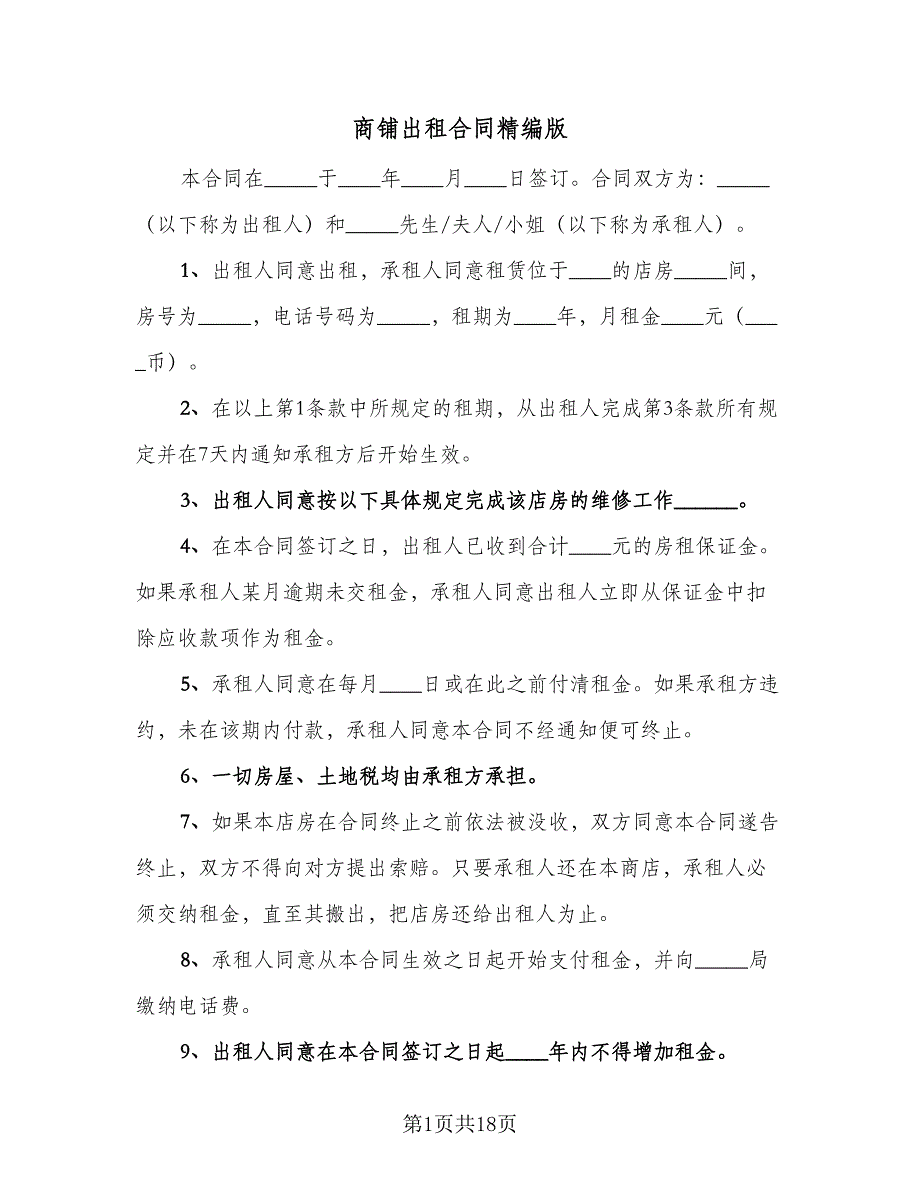 商铺出租合同精编版
本合同在_____于____年____月____日签订。合同双方为：_____
（以下称为出租人）和_____先生/夫人/小姐（以下称为承租人）。
1、出租人同意出租，承租人同意租赁位于____的店房_____间，
房号为_____，电话号码为_____，租期为____年，月租金____元（___
_币）。
2、在以上第1条款中所规定的租期，从出租人完成第3条款所有规
定并在7天内通知承租方后开始生效。
3、出租人同意按以下具体规定完成该店房的维修工作______。
4、在本合同签订之日，出租人已收到合计____元的房租保证金。
如果承租人某月逾期未交租金，承租人同意出租人立即从保证金中扣
除应收款项作为租金。
5、承租人同意在每月____日或在此之前付清租金。如果承租方违
约，未在该期内付款，承租人同意本合同不经通知便可终止。
6、一切房屋、土地税均由承租方承担。
7、如果本店房在合同终止之前依法被没收，双方同意本合同遂告
终止，双方不得向对方提出索赔。只要承租人还在本商店，承租人必
须交纳租金，直至其搬出，把店房还给出租人为止。
8、承租人同意从本合同生效之日起开始支付租金，并向_____局
缴纳电话费。
9、出租人同意在本合同签订之日起____年内不得增加租金。
第1页共18页